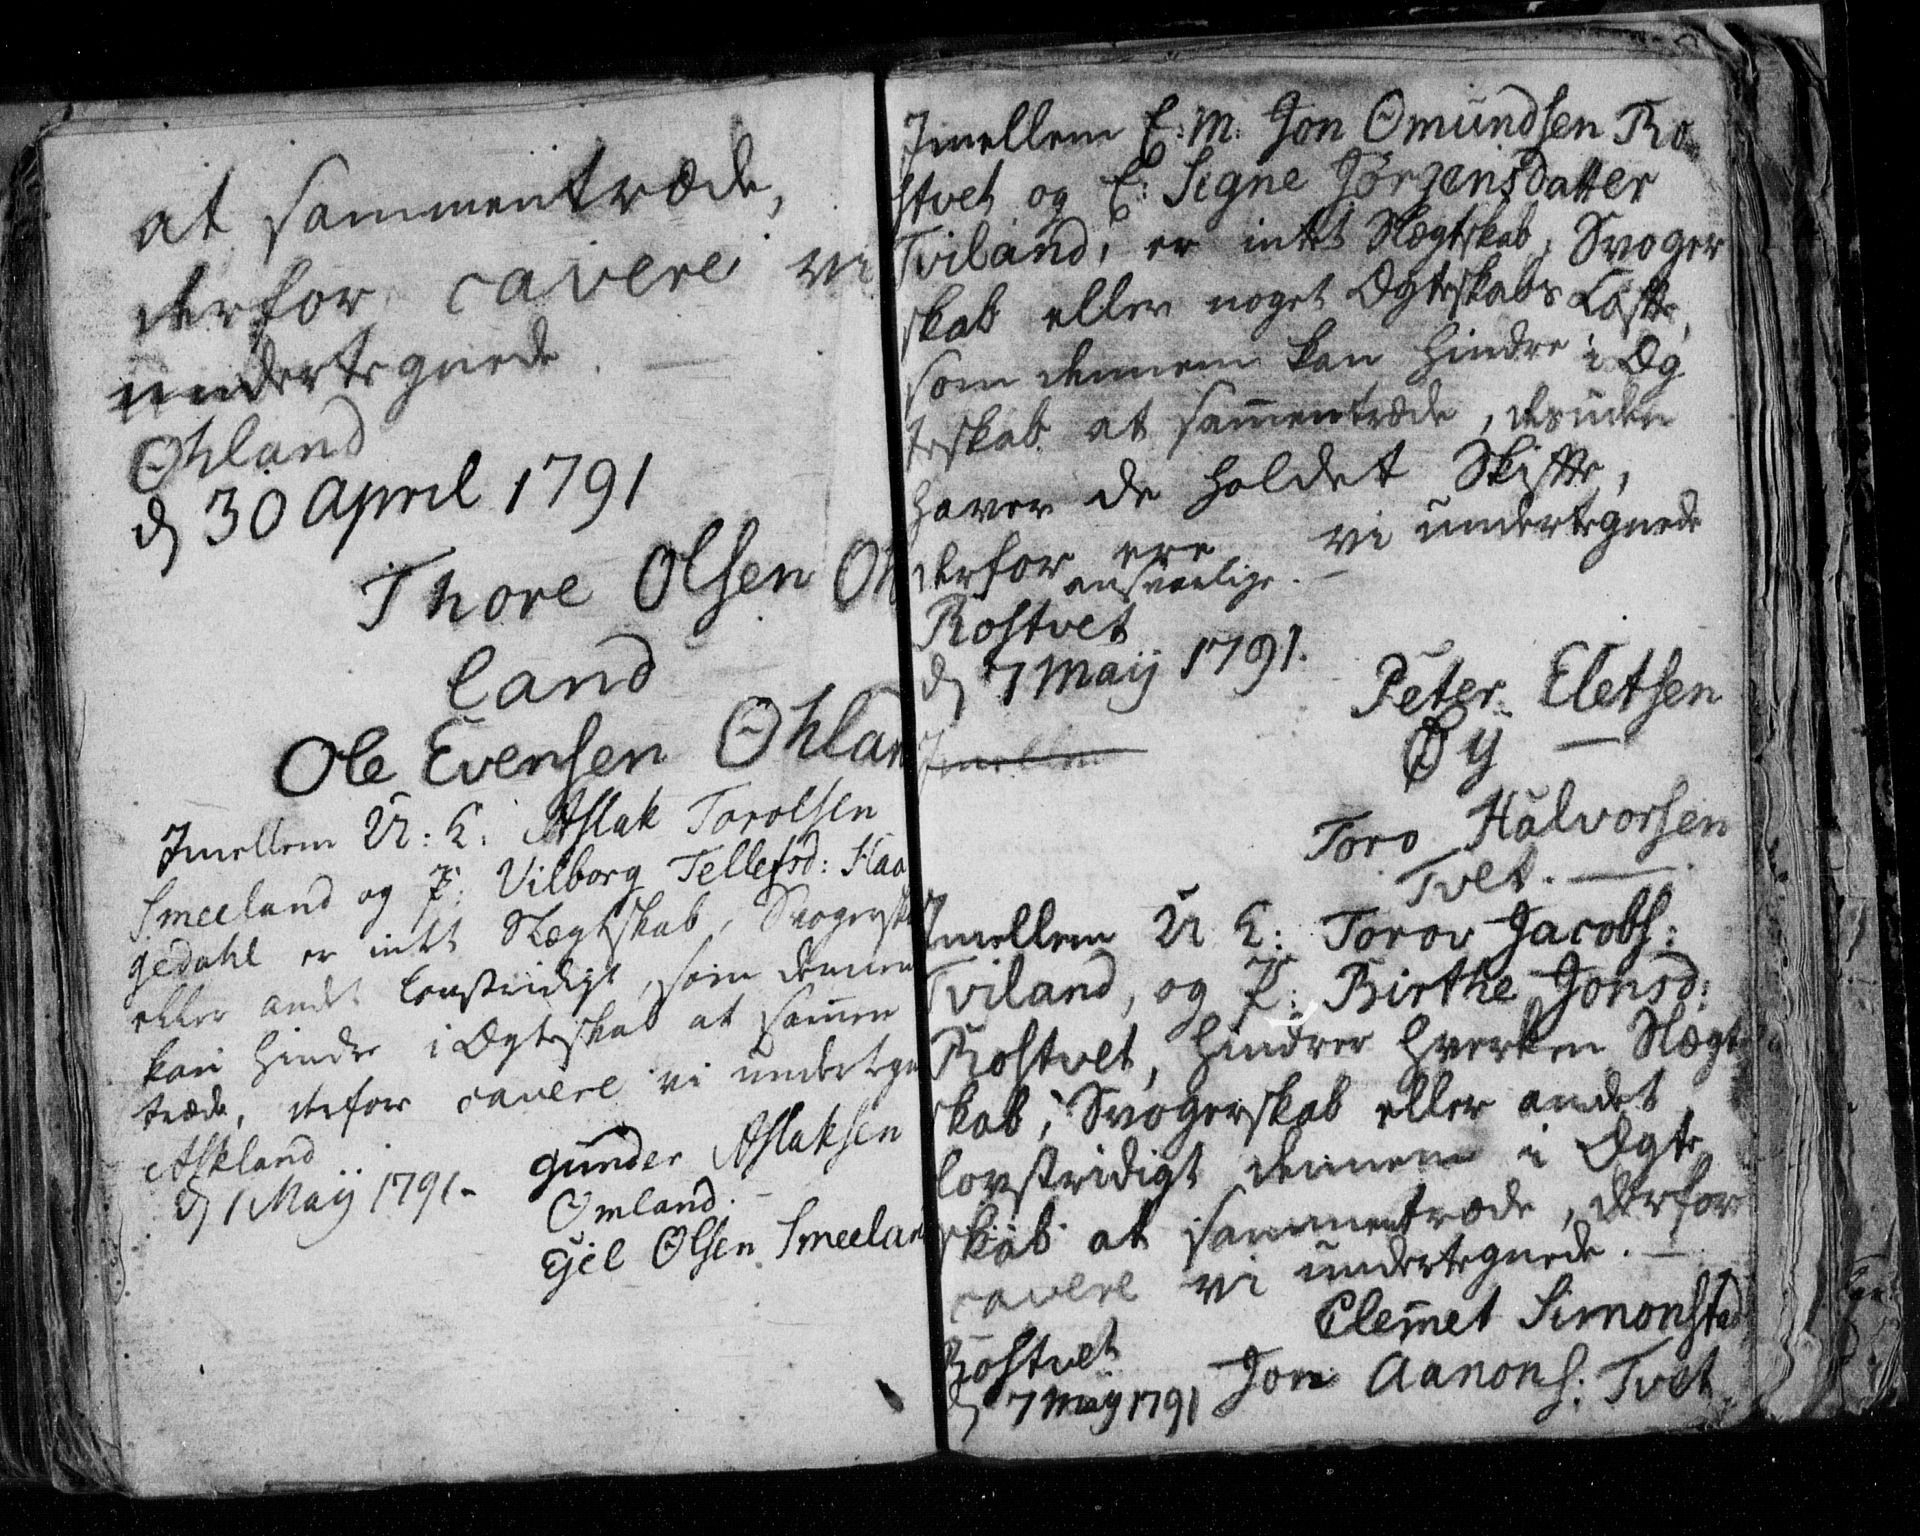 at sammentræde,
derfor cavere vi
undertegnede.
Øhland
d 30 April 1791
Thore Olsen Øh
land
Ole Evensen Øhlan
Imellem U: K: Aslak Torolsen
Smeeland og P: Vilborg Tellefsd: Haa
gedahl er intet Slægtskab, Svogersk
eller andet lovstridigt, som dennem
kan hindre i Ægteskab at samen
træde, derfor cavere vi undertegn
Askland
d 1 Maij 1791.
Gunder Aslaksen
Omland.
Ejel Olsen Smeelan
Imellem E: M: Jon Omundsen Ro
stvet og E: Signe Jörgensdatter
Tviland, er intet Slægtskab, Svoger
skab eller noget Ægteskabs Löfte,
som dennem kan hindre i Æg
teskab at sam̄entræde, desuden
haver de holdet Skifte,
derfor ere vi undertegnede
ansvarlige.
Rostvet
d 7 Maij 1791.
Imellem
Peter Eletsen
Øy
Toro Halvorsen
Tvet.
Imellem U K: Torov Jacobs:
Tviland, og P: Birthe Jonsd:
Rostvet, hindrer hverken Slægt
skab, Svogerskab eller andet
lovstridigt dennem i Ægte
skab at sammentræde, derfor
cavere vi undertegnede.
Rostvet
d 7 Maij 1791
Clem̄et Simonstad
Jon Aanons: Tvet